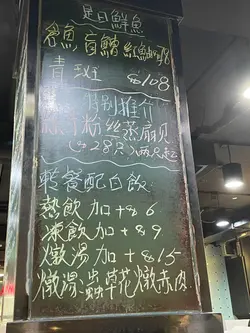 是日鮮魚
倉魚 盲鰽 紅魚
青班 $108
特別推介
粉絲蒸扇贝
($28只)两只起
轉餐配白飯
熱飲加+$6
凍飲加+$9
燉湯加+$15
燉湯:蟲草花燉赤肉